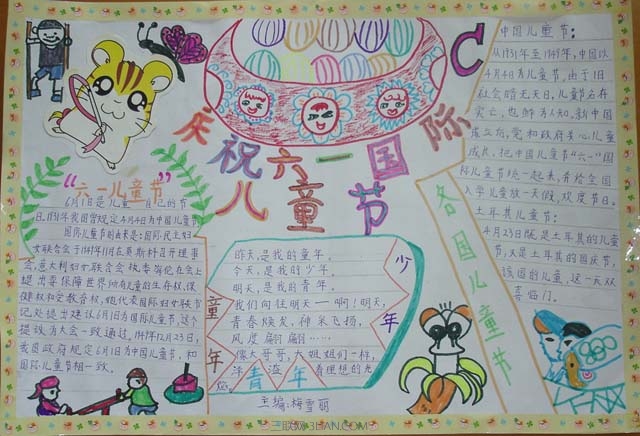 庆祝六一国际
儿童节
"六一儿童节"
6月1日是儿童自己的节
日,1931年我国曾规定4月4日为中国儿童节
国际儿童节的由来是:国际民主妇
女联合会于1949年11月在莫斯科召开理事
会,意大利妇女联合会执委的在会上
提出要保障世界所有儿童的生存权,保
健权和受教育权,她代表国际妇女联书
记处提出建议6月1日为国际儿童节,这个
提议为大会一致通过。1949年12月23日,
我政府规定6月1日为中国儿童节,和
国际儿童节相一致。
童年
少年
青年
昨天,是我的童年。
今天,是我的少年。
明天,是我的青年。
我们向往明天一啊!明天,
青春焕发,神采飞扬,
风度翩翩……
像大哥哥,大姐姐们一样,
洋溢着理想的光
焰。
主编:梅雪丽
各国儿童节
中国儿童节:
从1931年至1949年,中国以
4月4日为儿童节,由于旧
社会暗无天日,儿童节名存
实亡,也鲜为人知。新中国
成立后,党和政府关心儿童
成长,把中国儿童节"六一"国
际儿童节统一起来,并给全国
入学儿童放一天假,欢度节日。
土耳其儿童节:
4月23日既是土耳其的儿童
节,又是土耳其的国庆节,
该国的儿童,这一天双
喜临门。
三联网 3LIAN.COM